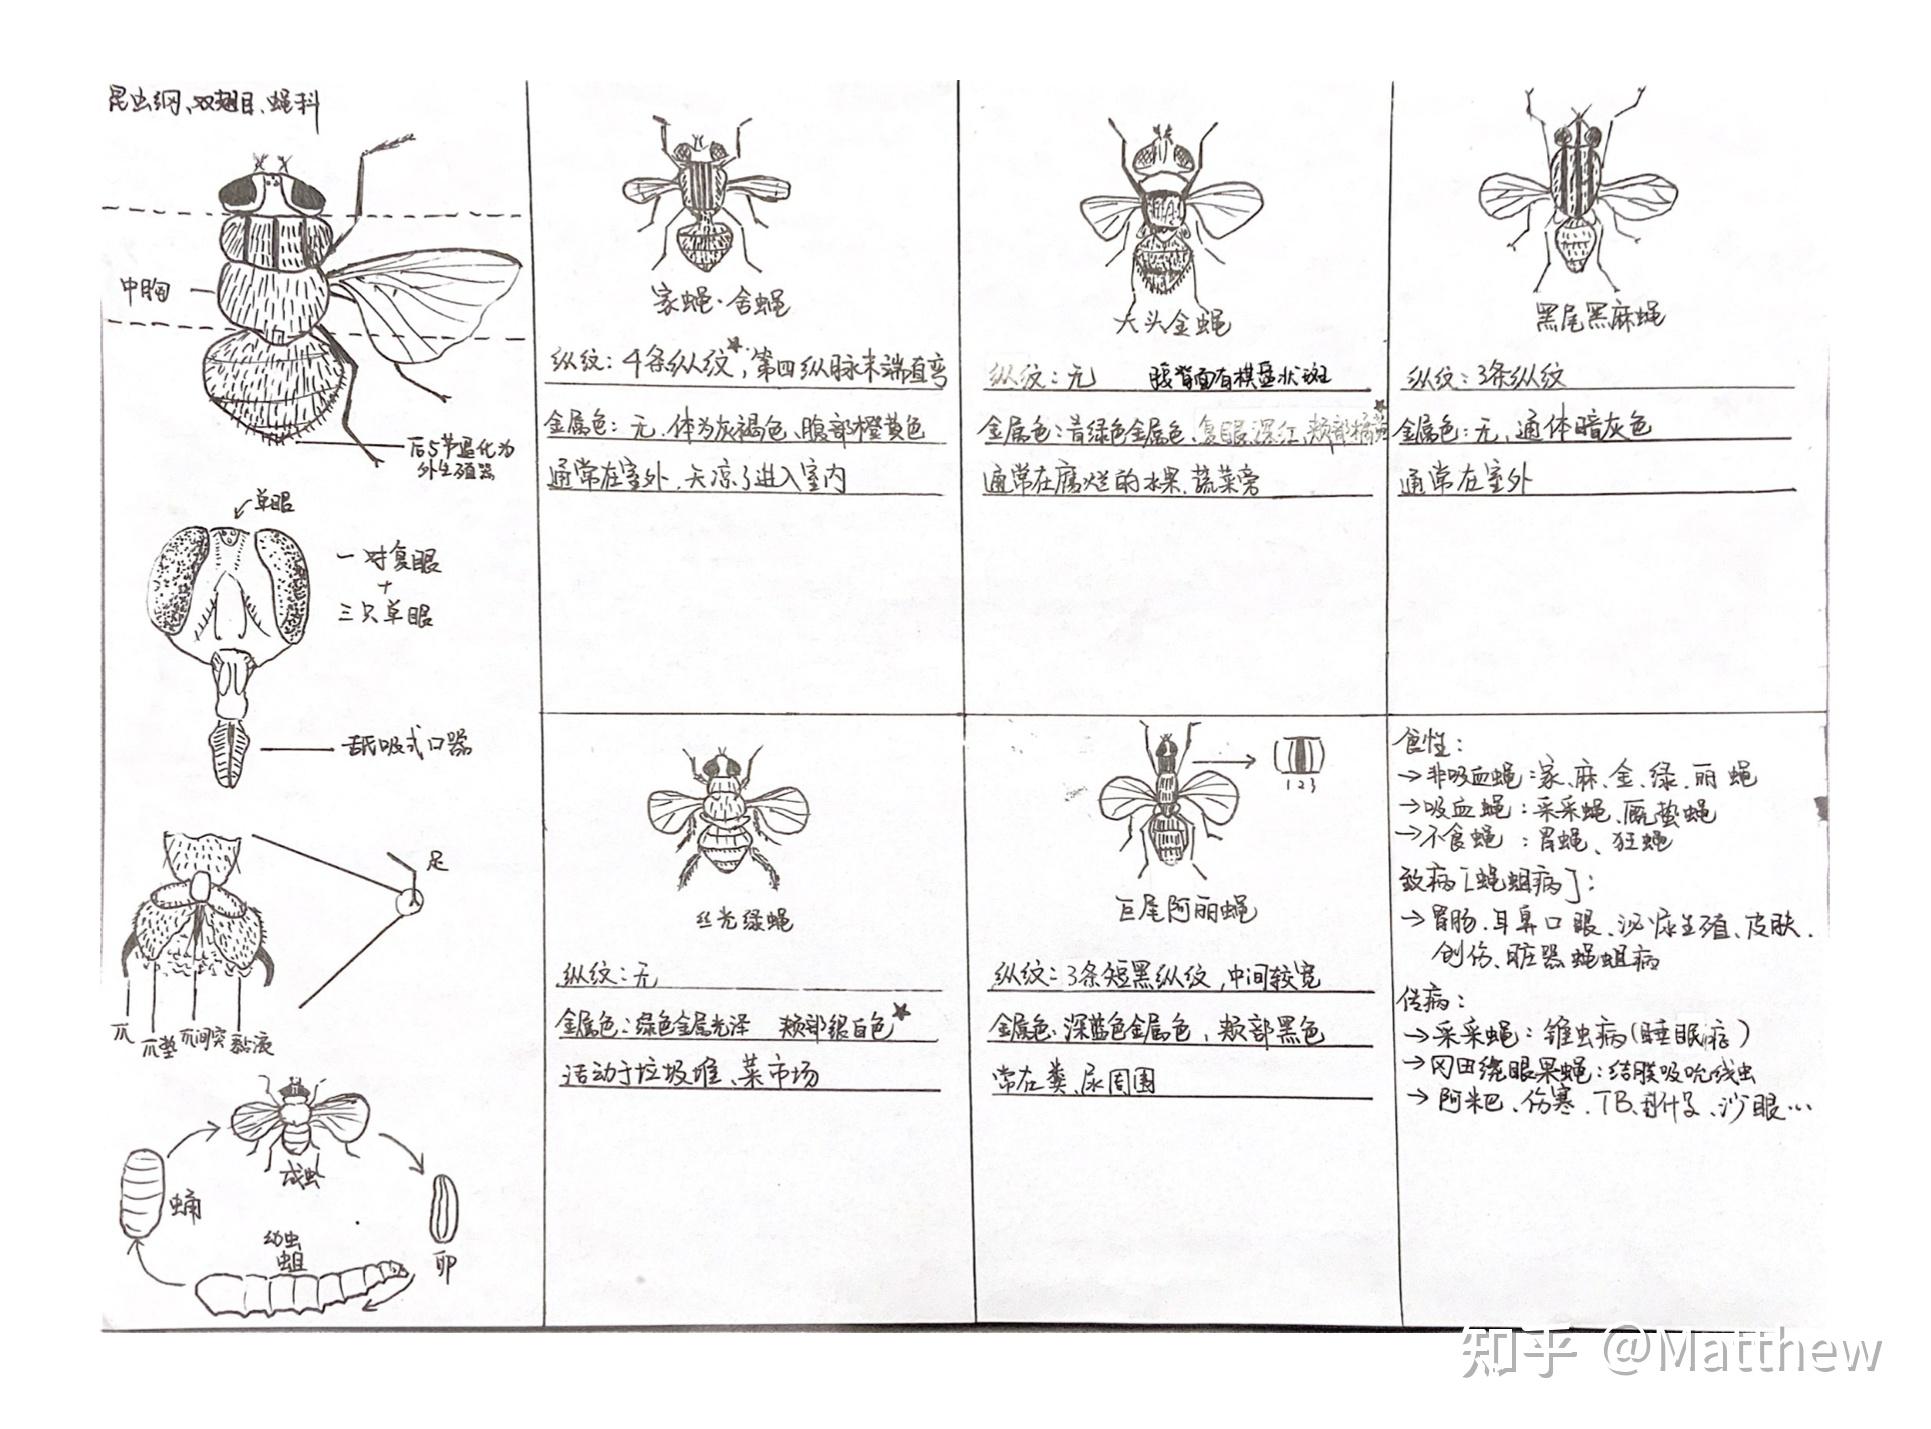 昆虫纲、双翅目、蝇科
中胸
后5节退化为
外生殖器
单眼
一对复眼
+
三只单眼
舐吸式口器
足
爪
爪垫
爪间突
黏液
成虫
蛹
幼虫
蛆
卵
家蝇·舍蝇
纵纹：4条纵纹★，第四纵脉末端直弯
金属色：无，体为灰褐色、腹部橙黄色
通常在室外，天凉了进入室内
大头金蝇
纵纹：无 腹背面有棋盘状斑
金属色：青绿色金属色、复眼深红，颊部橘黄★
通常在腐烂的水果、蔬菜旁
黑尾黑麻蝇
纵纹：3条纵纹
金属色：无，通体暗灰色
通常在室外
丝光绿蝇
纵纹：无
金属色：绿色金属光泽 颊部银白色★
活动于垃圾堆、菜市场
1 2 3
巨尾阿丽蝇
纵纹：3条短黑纵纹，中间较宽
金属色：深蓝色金属色，颊部黑色
常在粪、尿周围
食性：
→非吸血蝇：家、麻、金、绿、丽蝇
→吸血蝇：采采蝇、厩螫蝇
→不食蝇：胃蝇、狂蝇
致病[蝇蛆病]：
→胃肠、耳鼻口眼、泌尿生殖、皮肤、
创伤、脏器蝇蛆病
传病：
→采采蝇：锥虫病(睡眠病)
→冈田绕眼果蝇：结膜吸吮线虫
→阿米巴、伤寒、TB、沙眼…
知乎 @Matthew